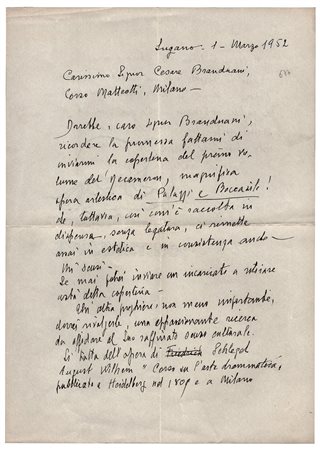 Lugano - 1 - Marzo 1952
Carissimo Signor Cesare Branduani,
Corso Matteotti, Milano -
Dovrebbe, caro Signor Branduani,
ricordare la promessa fattami di
inviarmi la copertina del primo vo-
lume del Decameron, magnifica
opera artistica di Palazzi e Boccasile!
così com'è raccolta in
dispensa, senza legatura, ci rimette
assai in estetica e in consistenza
Mi scusi -
Se mai potrei inviare un incaricato a ritirare
detta copertina -
Un'altra preghiera, non meno importante,
dovrei rivolgerle, una appassionante ricerca
da affidare al Suo raffinato senso culturale.
Si tratta dell'opera di Friedrich Schlegel
August Wilhelm "Corso su l'arte drammatica",
pubblicato a Heidelberg nel 1809 e a Milano